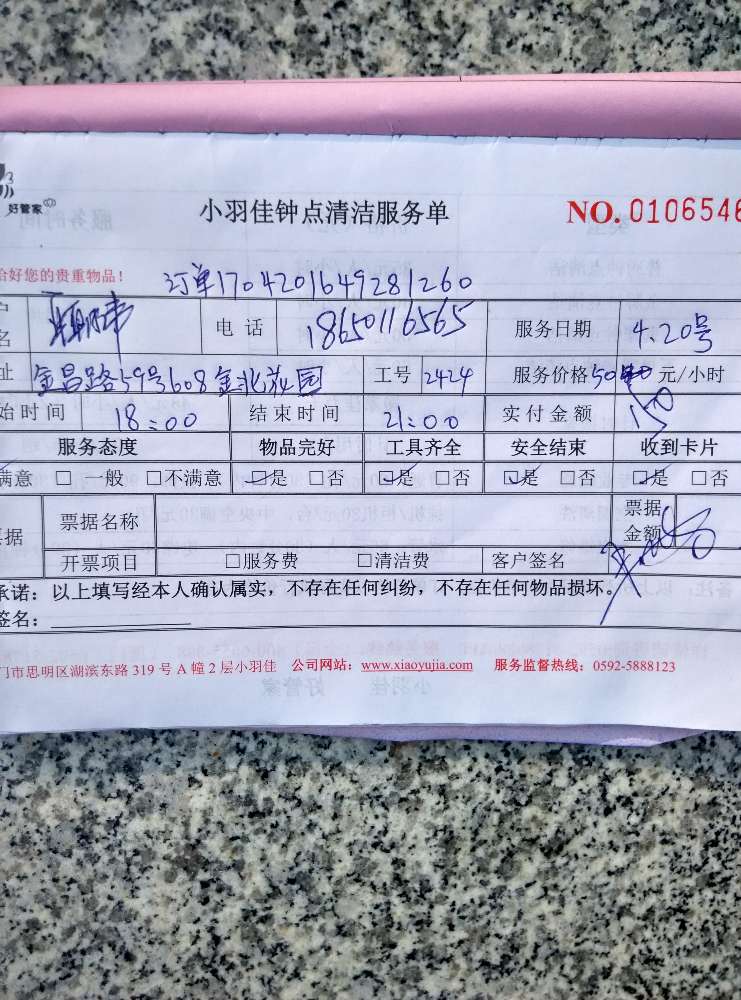 好管家
小羽佳钟点清洁服务单 NO. 0106546
给好您的贵重物品! 订单1704201649281260
户名 电话 18650116565 服务日期 4.20号
址 金昌路59号608金北花园 工号 2424 服务价格50元/小时
始时间 18:00 结束时间 21:00 实付金额 150
服务态度 物品完好 工具齐全 安全结束 收到卡片
满意 □ 一般 □不满意 □是 □否 □是 □否 □是 □否 □是 □否
据 票据名称 票据金额
开票项目 □服务费 □清洁费 客户签名
承诺：以上填写经本人确认属实，不存在任何纠纷，不存在任何物品损坏。
签名：
门市思明区湖滨东路 319 号 A 幢 2 层小羽佳 公司网站：www.xiaoyujia.com 服务监督热线：0592-5888123